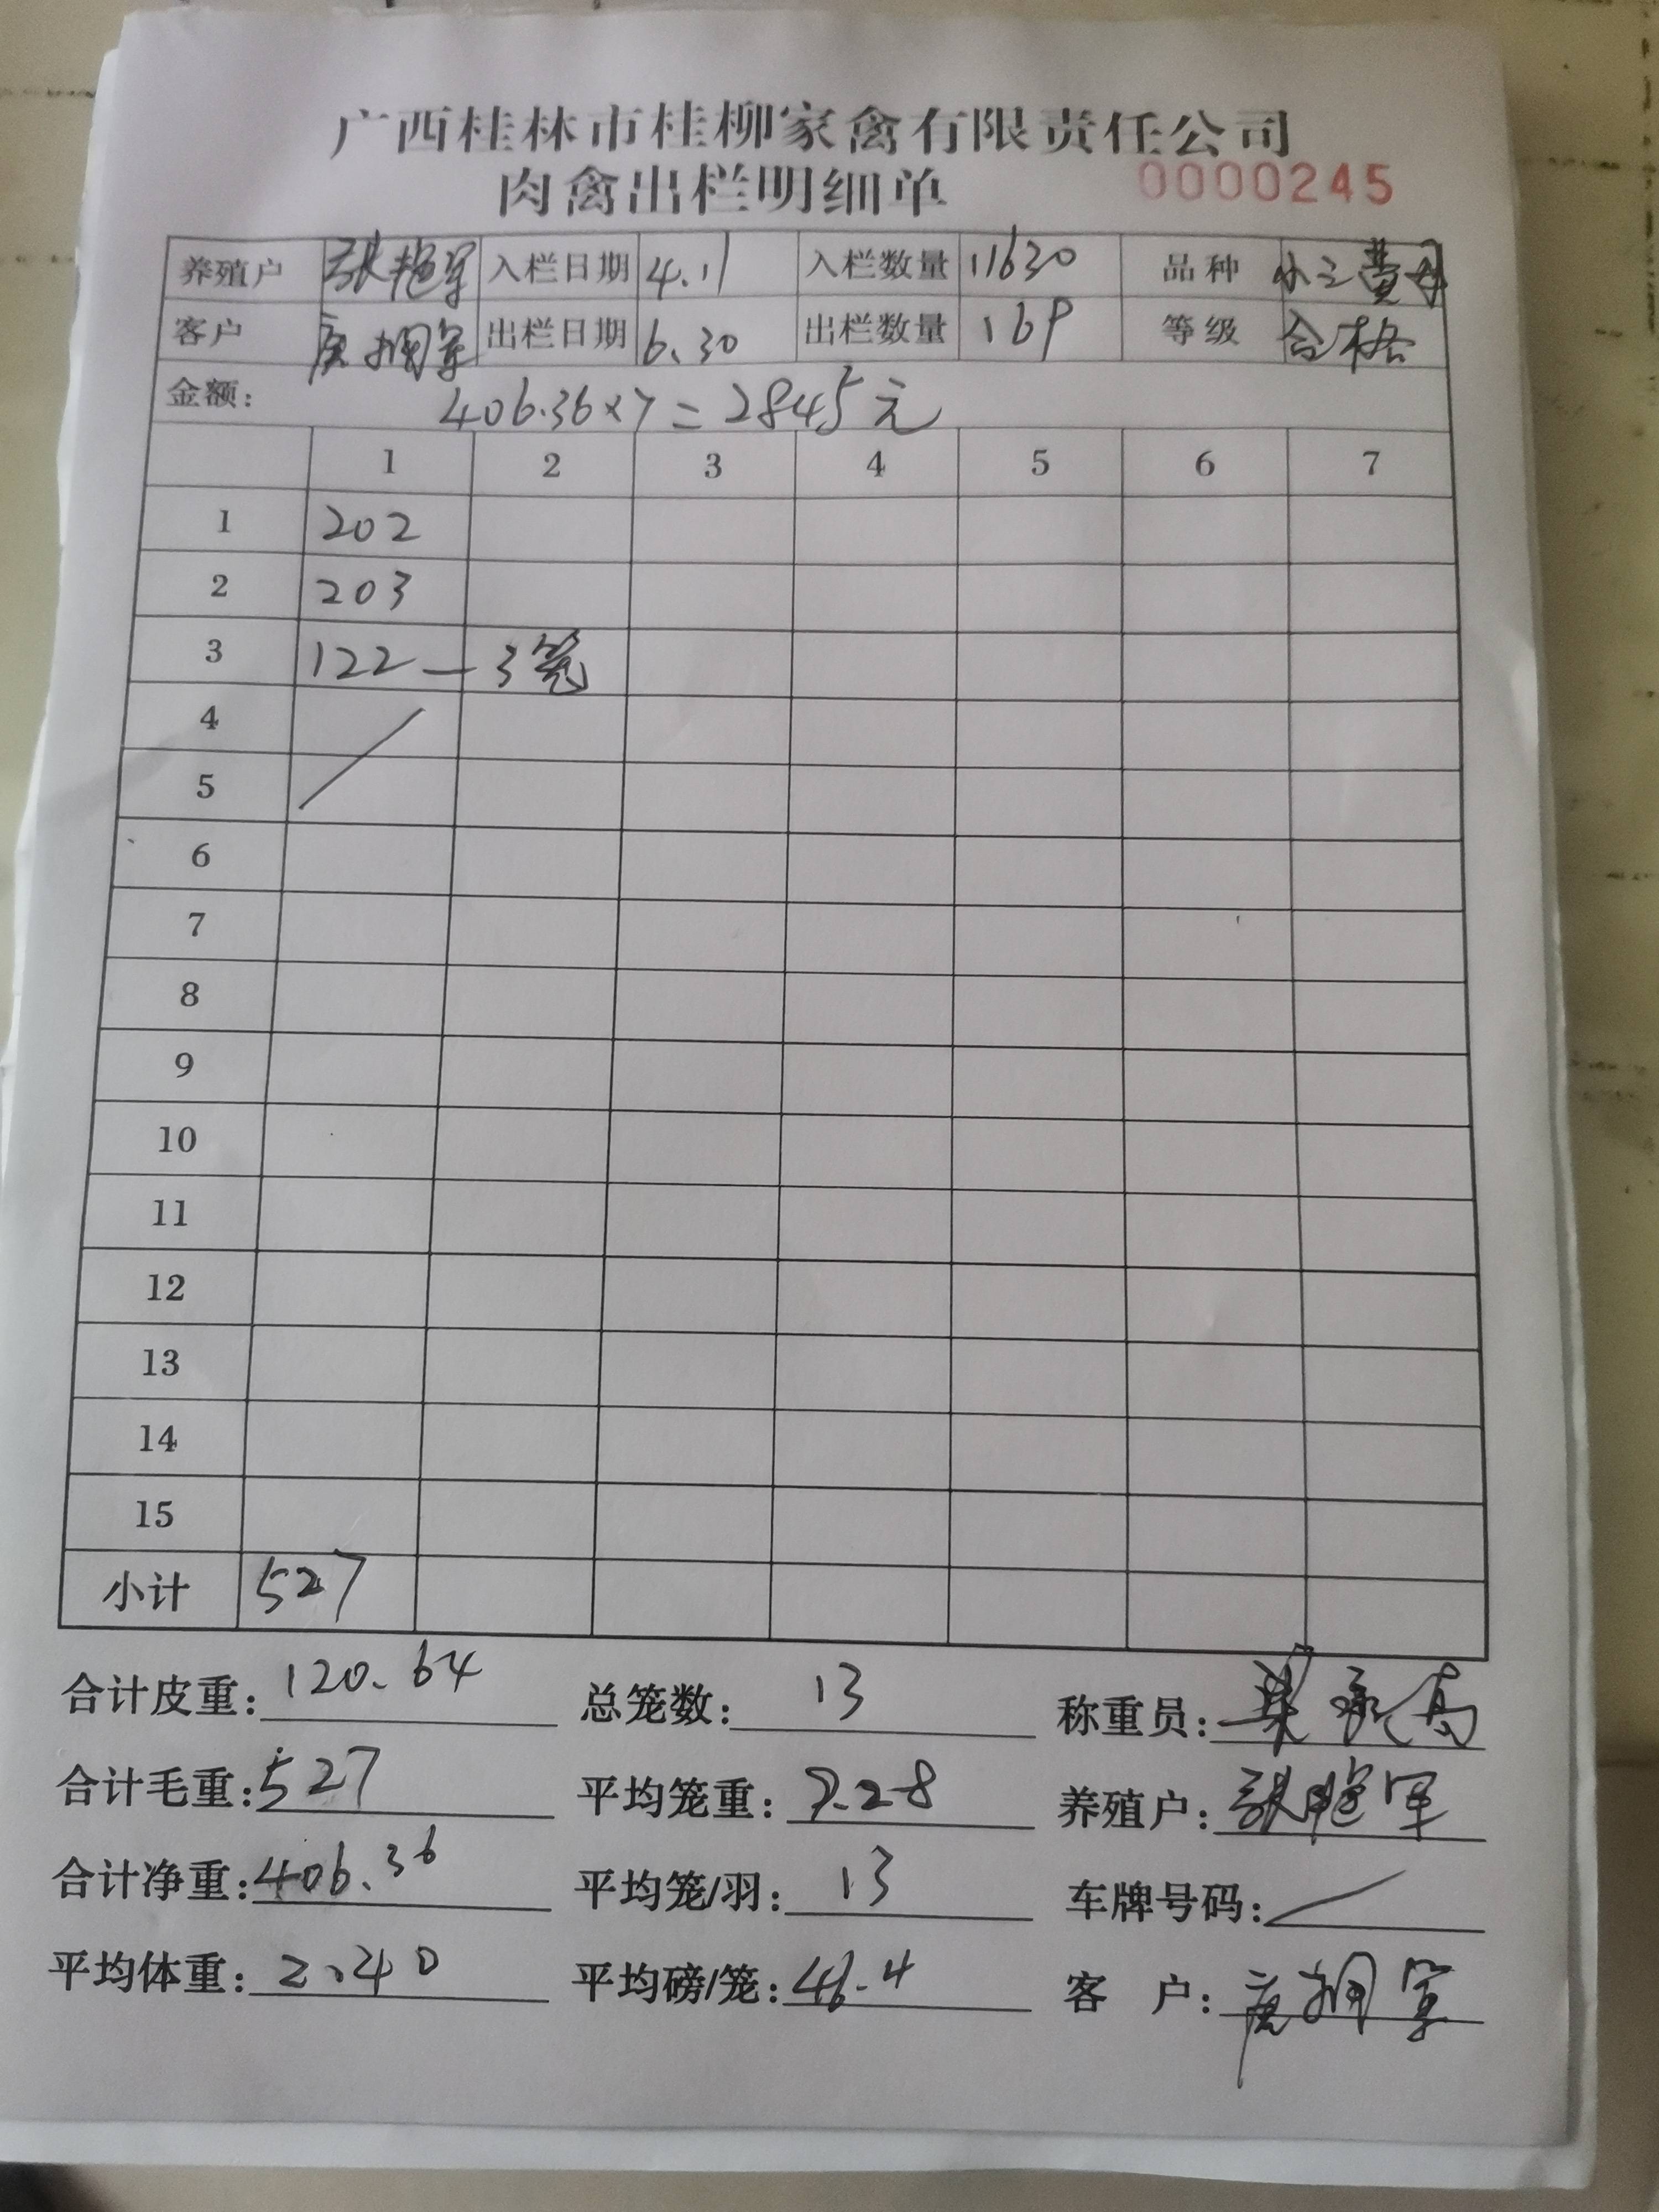 广西桂林市桂柳家禽有限责任公司
肉禽出栏明细单 0000245
养殖户 张艳军 入栏日期 4.11 入栏数量 11630 品种
客户 唐拥军 出栏日期 6.30 出栏数量 169 等级 合格
金额: 406.36×7=2845元
1 2 3 4 5 6 7
1 202
2 203
3 122—3笼
4
5
6
7
8
9
10
11
12
13
14
15
小计 527
合计皮重: 120.64 总笼数: 13 称重员:
合计毛重: 527 平均笼重: 9.28 养殖户: 张艳军
合计净重: 406.36 平均笼/羽: 13 车牌号码:
平均体重: 2.40 平均磅/笼: 46.4 客 户: 唐拥军